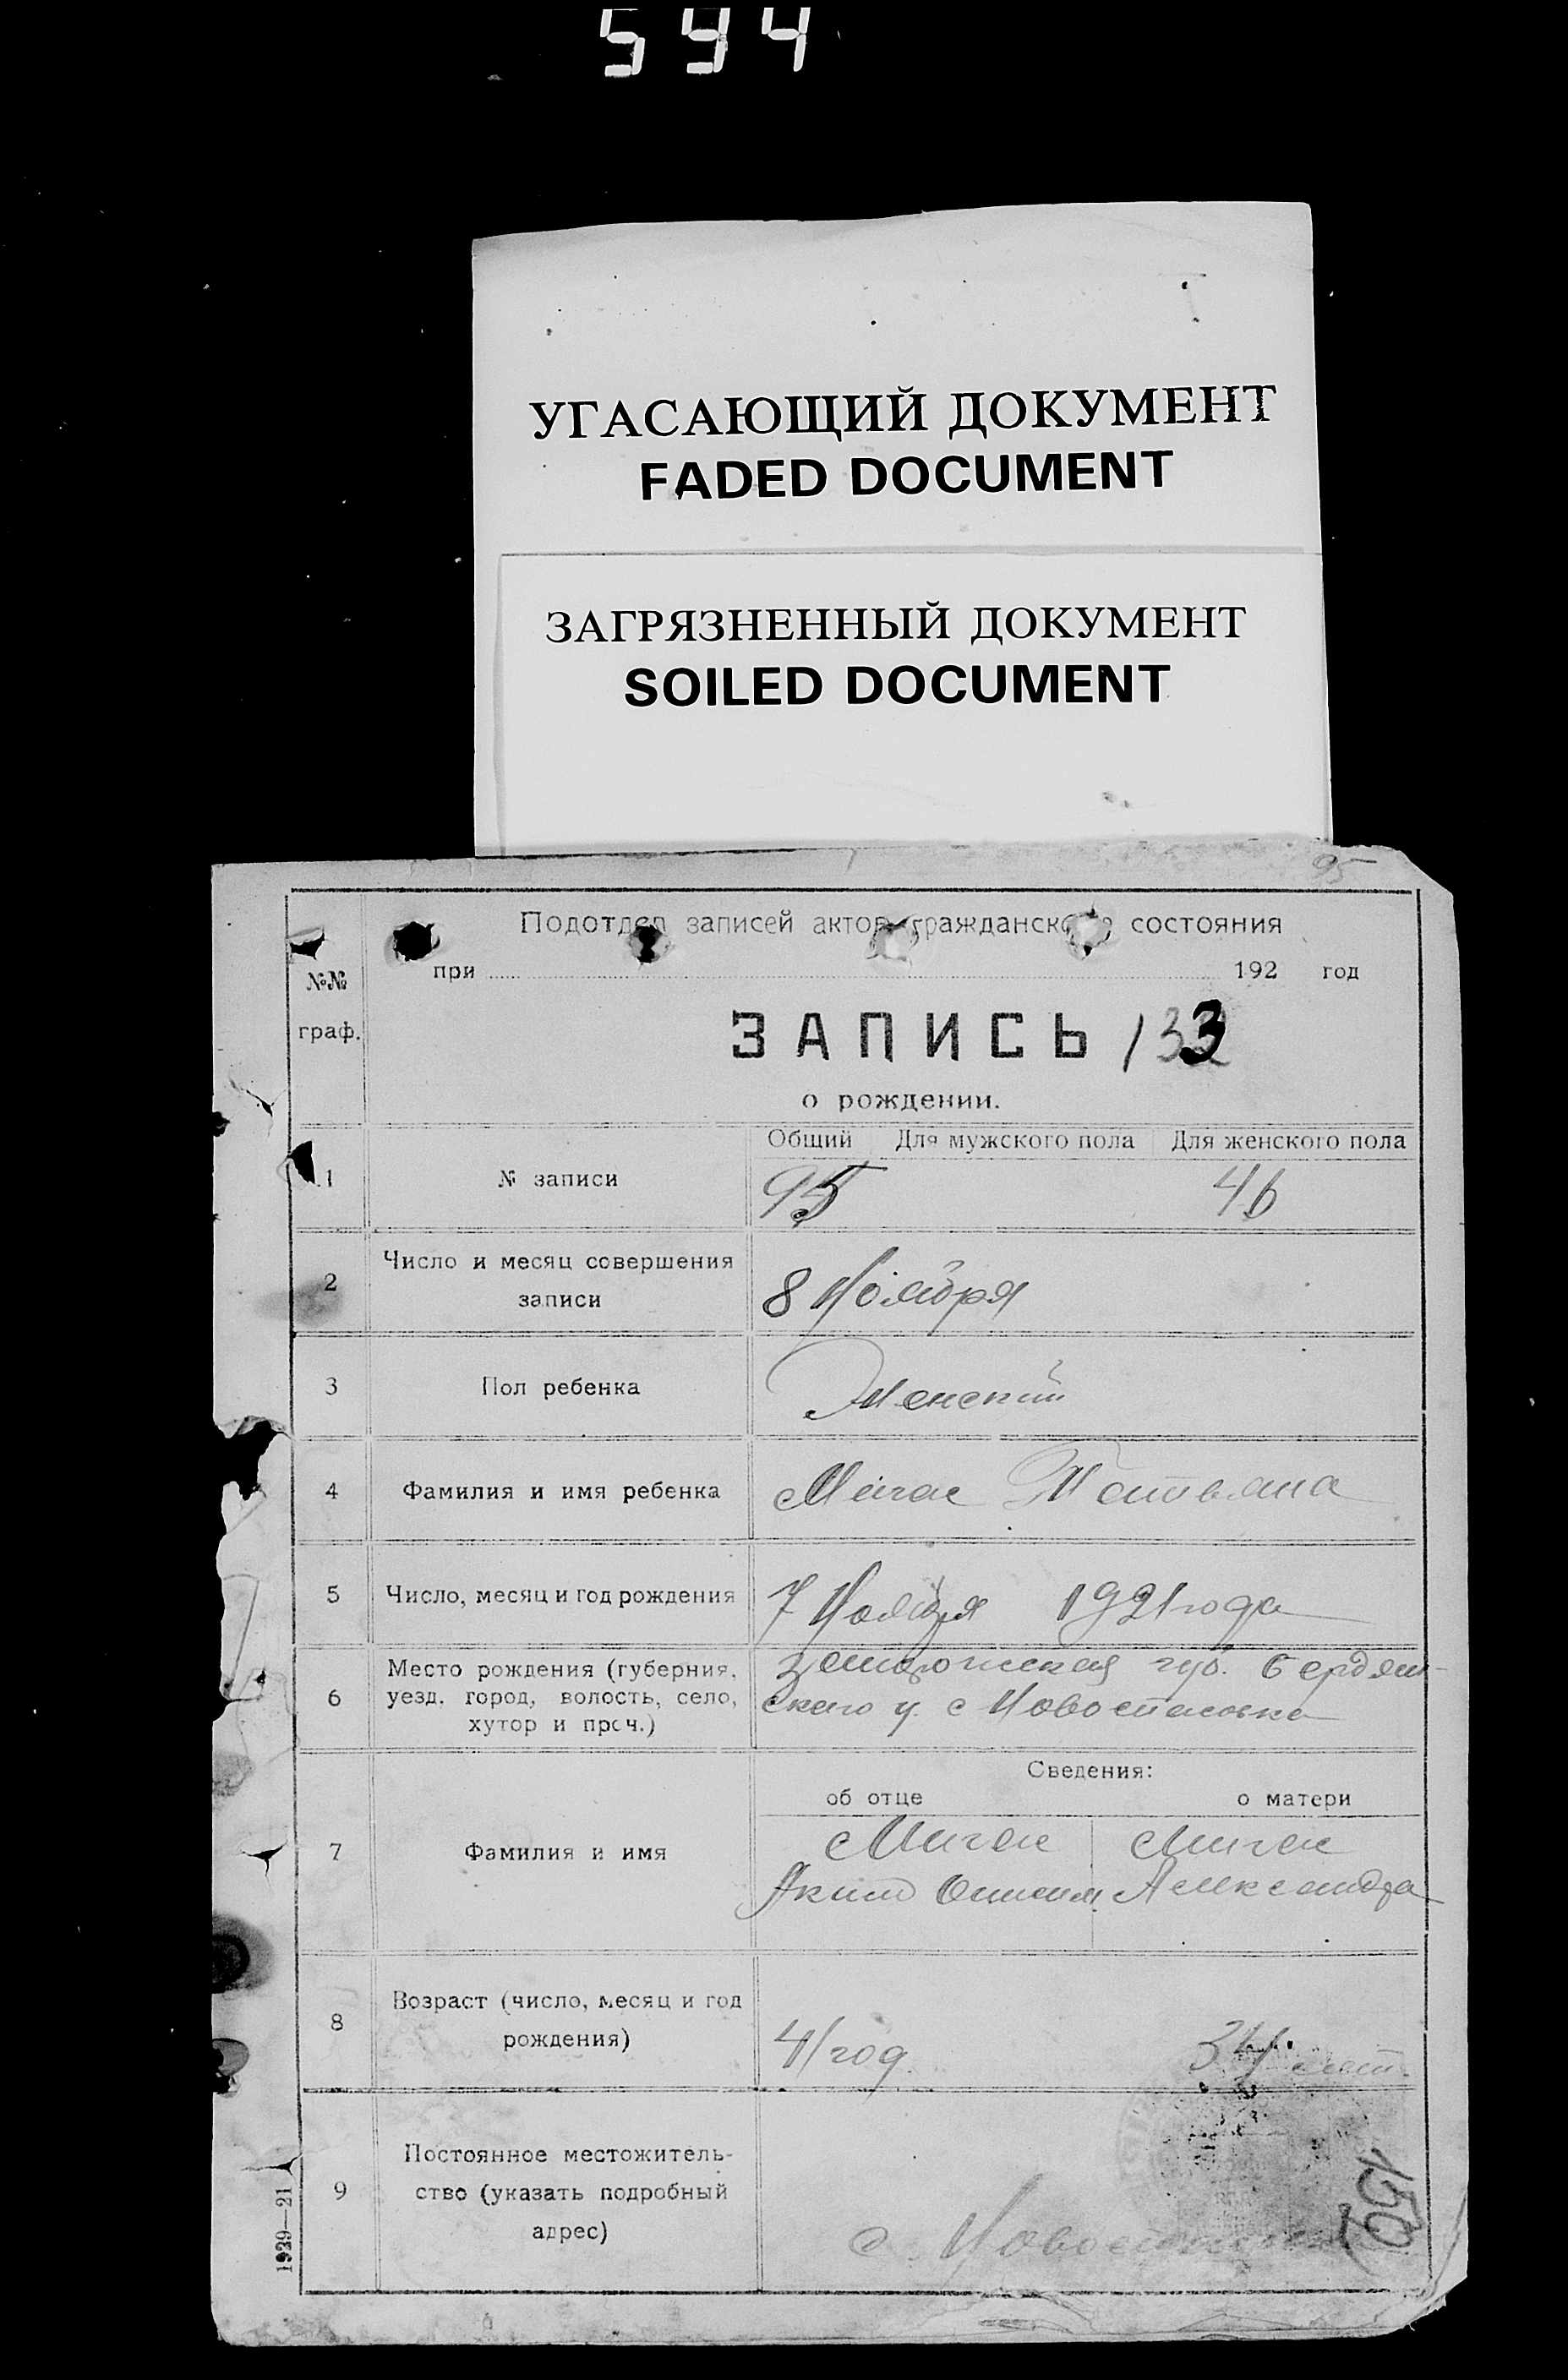 594
УГАСАЮЩИЙ ДОКУМЕНТ
FADED DOCUMENT
ЗАГРЯЗНЕННЫЙ ДОКУМЕНТ
SOILED DOCUMENT
95
Подотдел записей актов гражданского состояния
№№ граф.
при 192 год
ЗАПИСЬ 133
о рождении.
Общий Для мужского пола Для женского пола
1 № записи 95 46
2 Число и месяц совершения
записи
8 Ноября
3 Пол ребенка Женский
4 Фамилия и имя ребенка Мигае Татьяна
5 Число, месяц и год рождения 7 Ноября 1921 года
6 Место рождения (губерния,
уезд, город, волость, село,
хутор и проч.)
Запорожская губ. Бердян-
ского у. с Новоспасовка
Сведения:
об отце о матери
7 Фамилия и имя
Мигае Мигае
Аким Александра
8 Возраст (число, месяц и год
рождения)
41 год 34 лет.
9 Постоянное местожитель-
ство (указать подробный
адрес)
с.
150
1939—21